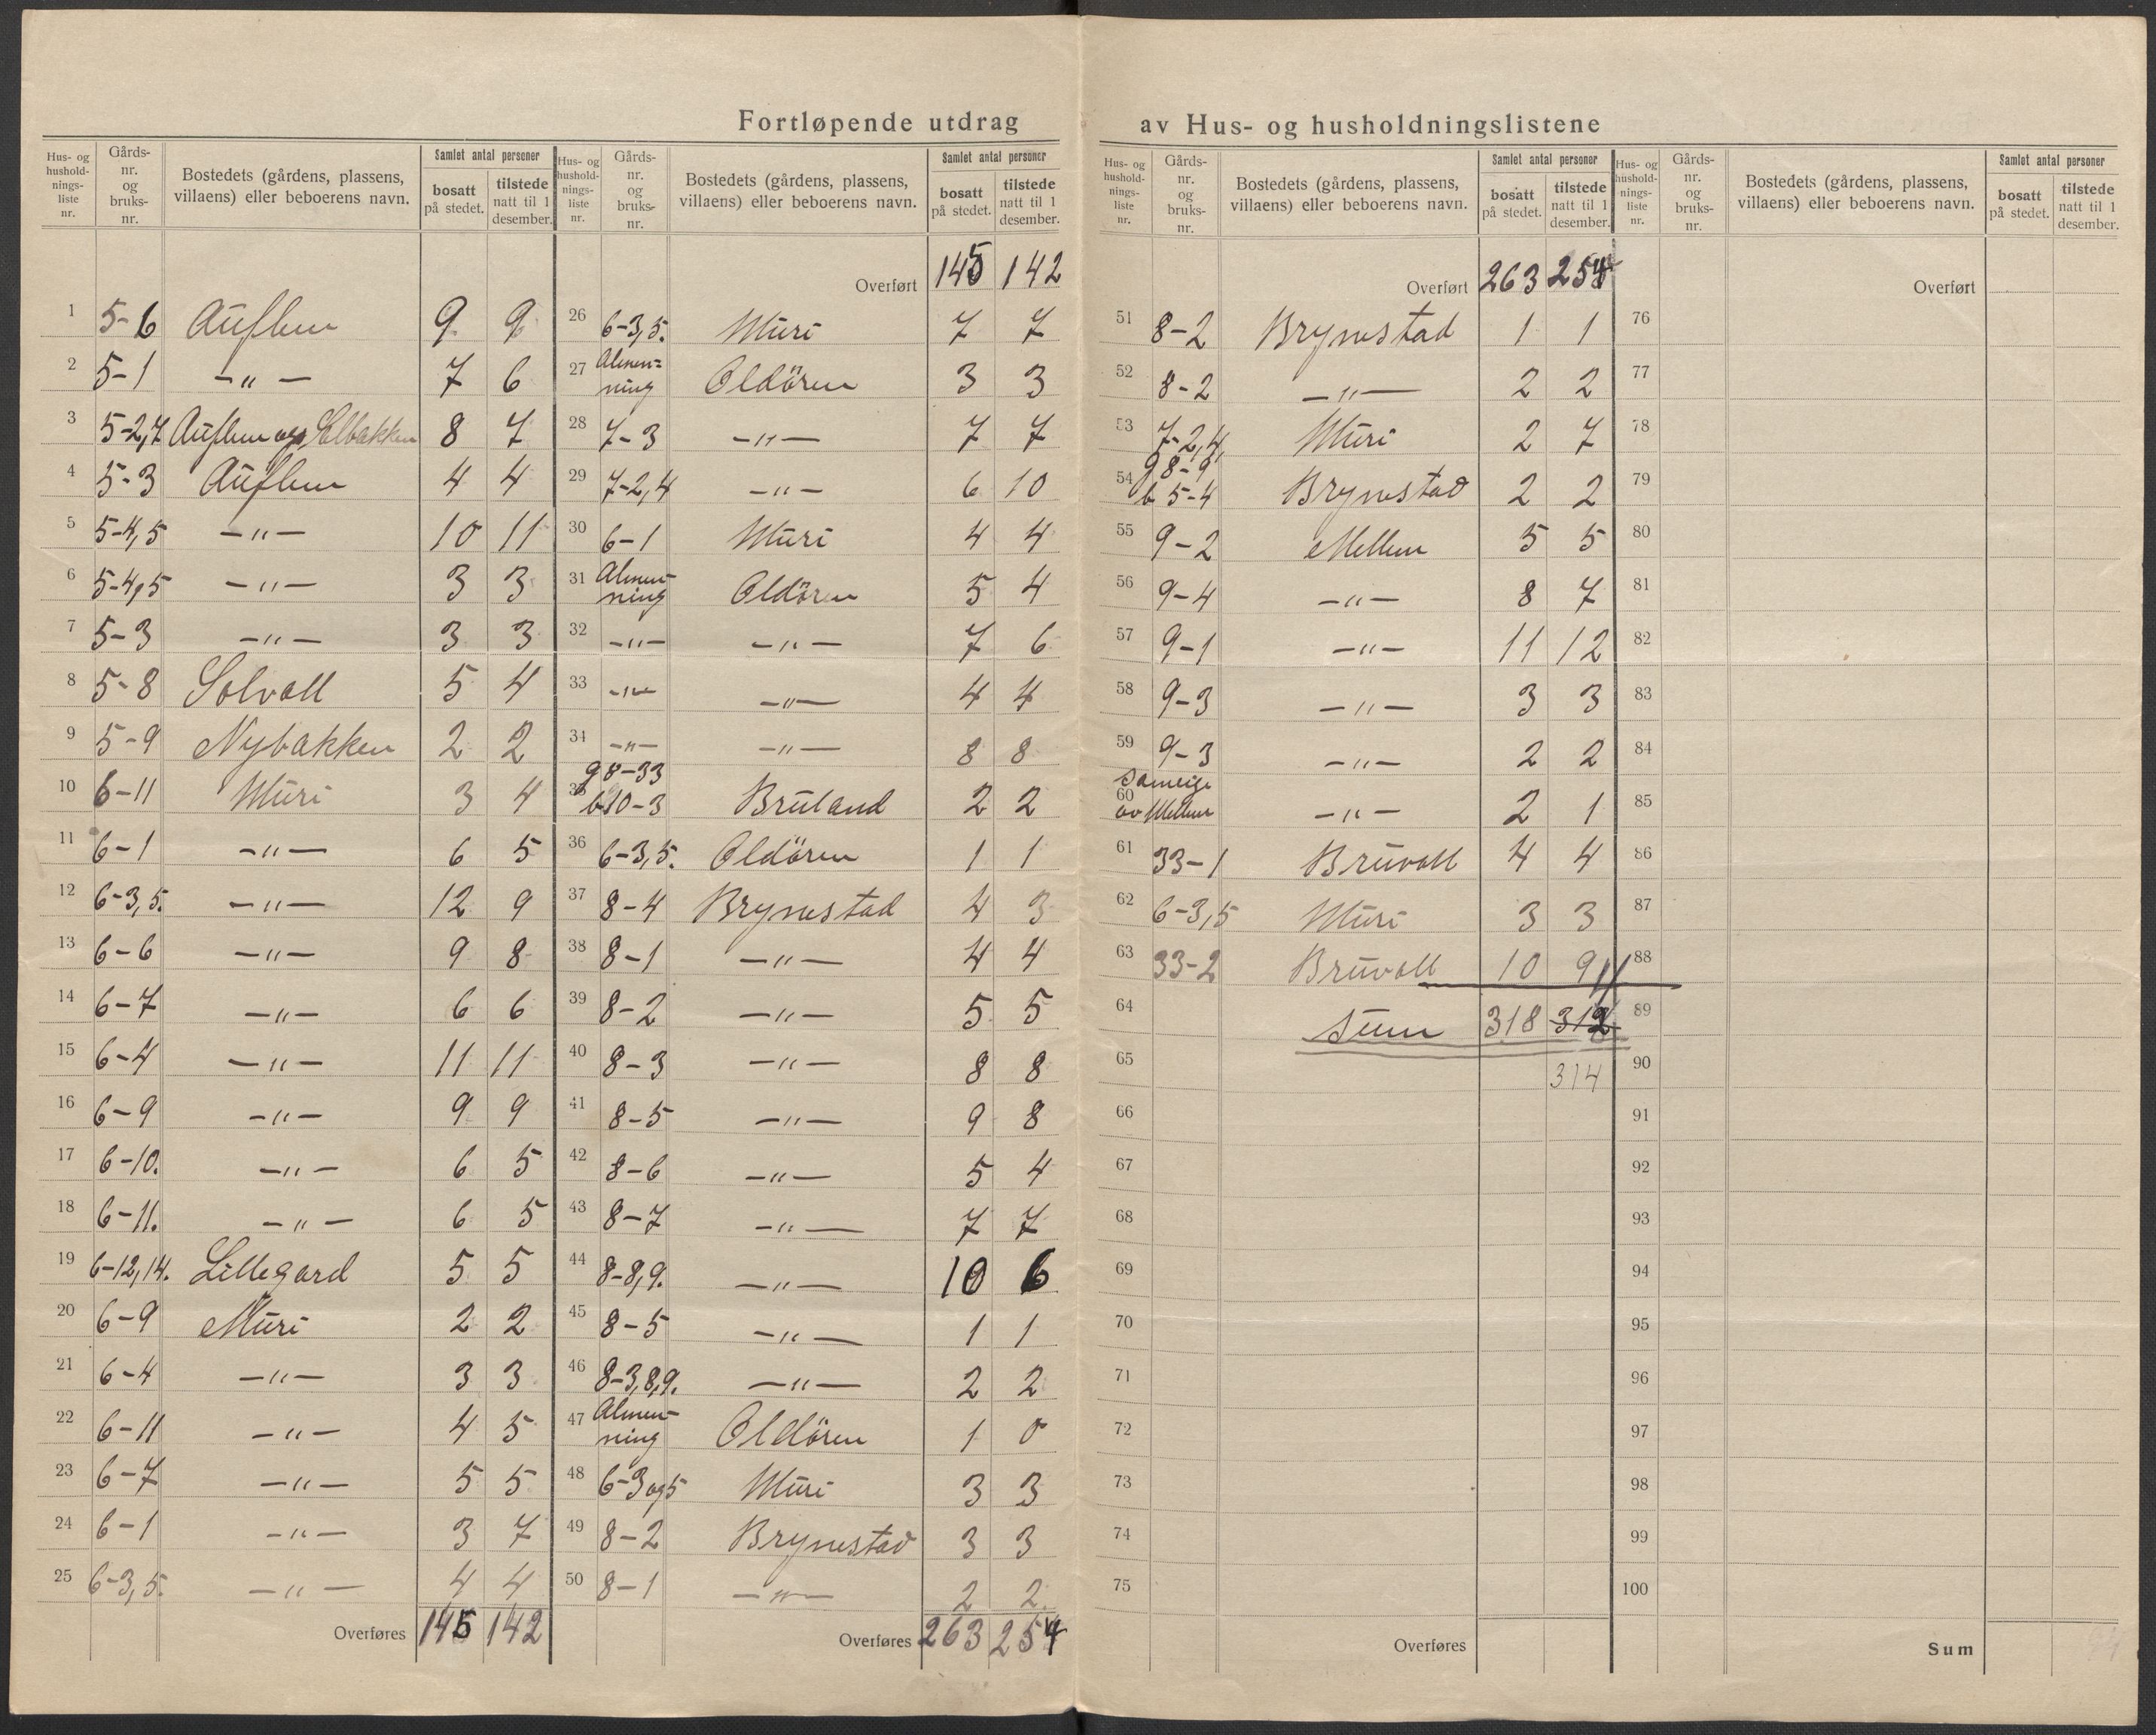 Fortløpende utdrag av Hus- og husholdningslistene
Hus- og hushold-nings-liste nr. | Gårds-nr. og bruks-nr. | Bostedets (gårdens, plassens, villaens) eller beboerens navn. | Samlet antal personer | bosatt på stedet. | tilstede natt til 1 desember.
1 5-6 Auflem 9 9
2 5-1 -"- 7 6
3 5-2,7 Auflem og Solbakken 8 7
4 5-3 Auflem 4 4
5 5-4,5 -"- 10 11
6 5-4,5 -"- 3 3
7 5-3 -"- 3 3
8 5-8 Solvoll 5 4
9 5-9 Nybakken 2 2
10 6-11 Muri 3 4
11 6-1 -"- 6 5
12 6-3,5. -"- 12 9
13 6-6 -"- 9 8
14 6-7 -"- 6 6
15 6-4 -"- 11 11
16 6-9 -"- 9 9
17 6-10. -"- 6 5
18 6-11. -"- 6 5
19 6-12,14. Lillegard 5 5
20 6-9 Muri 2 2
21 6-4 -"- 3 3
22 6-11 -"- 4 5
23 6-7 -"- 5 5
24 6-1 -"- 3 7
25 6-3,5. -"- 4 4
Overføres 145 142
Hus- og hushold-nings-liste nr. | Gårds-nr. og bruks-nr. | Bostedets (gårdens, plassens, villaens) eller beboerens navn. | Samlet antal personer | bosatt på stedet. | tilstede natt til 1 desember.
Overført 145 142
26 6-3,5. Muri 7 7
27 Almen-ning Oldören 3 3
28 7-3 -"- 7 7
29 7-2,4 -"- 6 10
30 6-1 Muri 4 4
31 Almen-ning Oldören 5 4
32 -"- -"- 7 6
33 -"- -"- 4 4
34 -"- -"- 8 8
35 g 8-33 b 10-3 Bruland 2 2
36 6-3,5. Oldören 1 1
37 8-4 Brynestad 4 3
38 8-1 -"- 4 4
39 8-2 -"- 5 5
40 8-3 -"- 8 8
41 8-5 -"- 9 8
42 8-6 -"- 5 4
43 8-7 -"- 7 7
44 8-8,9. -"- 10 6
45 8-5 -"- 1 1
46 8-3,8,9. -"- 2 2
47 Almen-ning Oldören 1 0
48 6-3 og 5 Muri 3 3
49 8-2 Brynestad 3 3
50 8-1 -"- 2 2
Overføres 263 254
Hus- og hushold-nings-liste nr. | Gårds-nr. og bruks-nr. | Bostedets (gårdens, plassens, villaens) eller beboerens navn. | Samlet antal personer | bosatt på stedet. | tilstede natt til 1 desember.
Overført 263 254
51 8-2 Brynestad 1 1
52 8-2 -"- 2 2
53 7-2,4, Muri 2 7
54 g 8-9 b 5-4 Brynestad 2 2
55 9-2 Mellem 5 5
56 9-4 -"- 8 7
57 9-1 -"- 11 12
58 9-3 -"- 3 3
59 9-3 -"- 2 2
60 Sameige av Mellem -"- 2 1
61 33-1 Bruvoll 4 4
62 6-3,5 Muri 3 3
63 33-2 Bruvoll 10 9
64 Sum 318 312
65 314
66
67
68
69
70
71
72
73
74
75
Overføres
Hus- og hushold-nings-liste nr. | Gårds-nr. og bruks-nr. | Bostedets (gårdens, plassens, villaens) eller beboerens navn. | Samlet antal personer | bosatt på stedet. | tilstede natt til 1 desember.
Overført
76
77
78
79
80
81
82
83
84
85
86
87
88
89
90
91
92
93
94
95
96
97
98
99
100
Sum